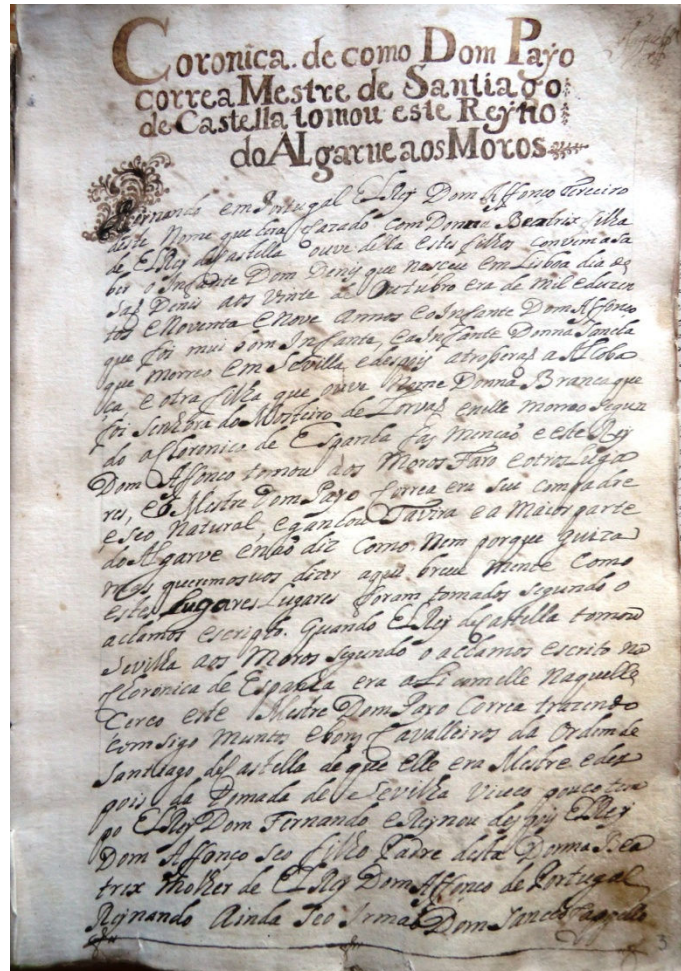 Coronica. de como Dom Payo
correa Mestre de Santiago
de Castella tomou este Reyno
do Algarue aos Moros
em Portugal El Rey Dom Affonço Terceiro
deste Nome que era Cazado com Donna Beatrix filha
de El Rey de Castella ouve della estes filhos convem a sa
ber o Infante Dom Denis que nasceu em Lisboa dia de
Saõ Denis aos Vinte de Outubro era de Mil e duzen
tos e Noventa e Nove Annos e o Infante Dom Affonço
que foi mui bom Infante, e a Infante Donna
que Morreo em Sevilha e despois a Alcoba
ça e otra filha que ouve Nome Donna Branca que
foi Senhora do Mosteiro de Lorvaõ e nelle morreo Segun
do a Coronica de Espanha fas Mençaõ e este Rey
Dom Affonco tomou aos Moros Faro e otros Luga
res, e o Mestre Dom Payo Correa era seu compadre
e seo Natural e ganhou Tavira e a Maior parte
do Algarve e naõ diz Como, Nem porque guiza
mas queremosvos dizer aqui breve Mente Como
estes Lugares Lugares foram tomados segundo o
achamos escripto. Quando El Rey de Castella tomou
Sevilha aos Moros segundo o achamos escrito na
Coronica de Espanha era ali com elle Naquelle
Cerco este Mestre Dom Payo Correa trazendo
comsigo Muntos e bons Cavalleiros da Ordem de
Santiago de Castella de que elle era Mestre e des
pois da Tomada de Sevilha Viveo pouco tem
po El Rey Dom Fernando e Reynou despois El Rey
Dom Affonço seo filho Padre desta Donna Bea
trix molher de El Rey Dom Affonco de Portugal
Reynando Ainda Seo Irmaõ Dom Sancho Cappello
3